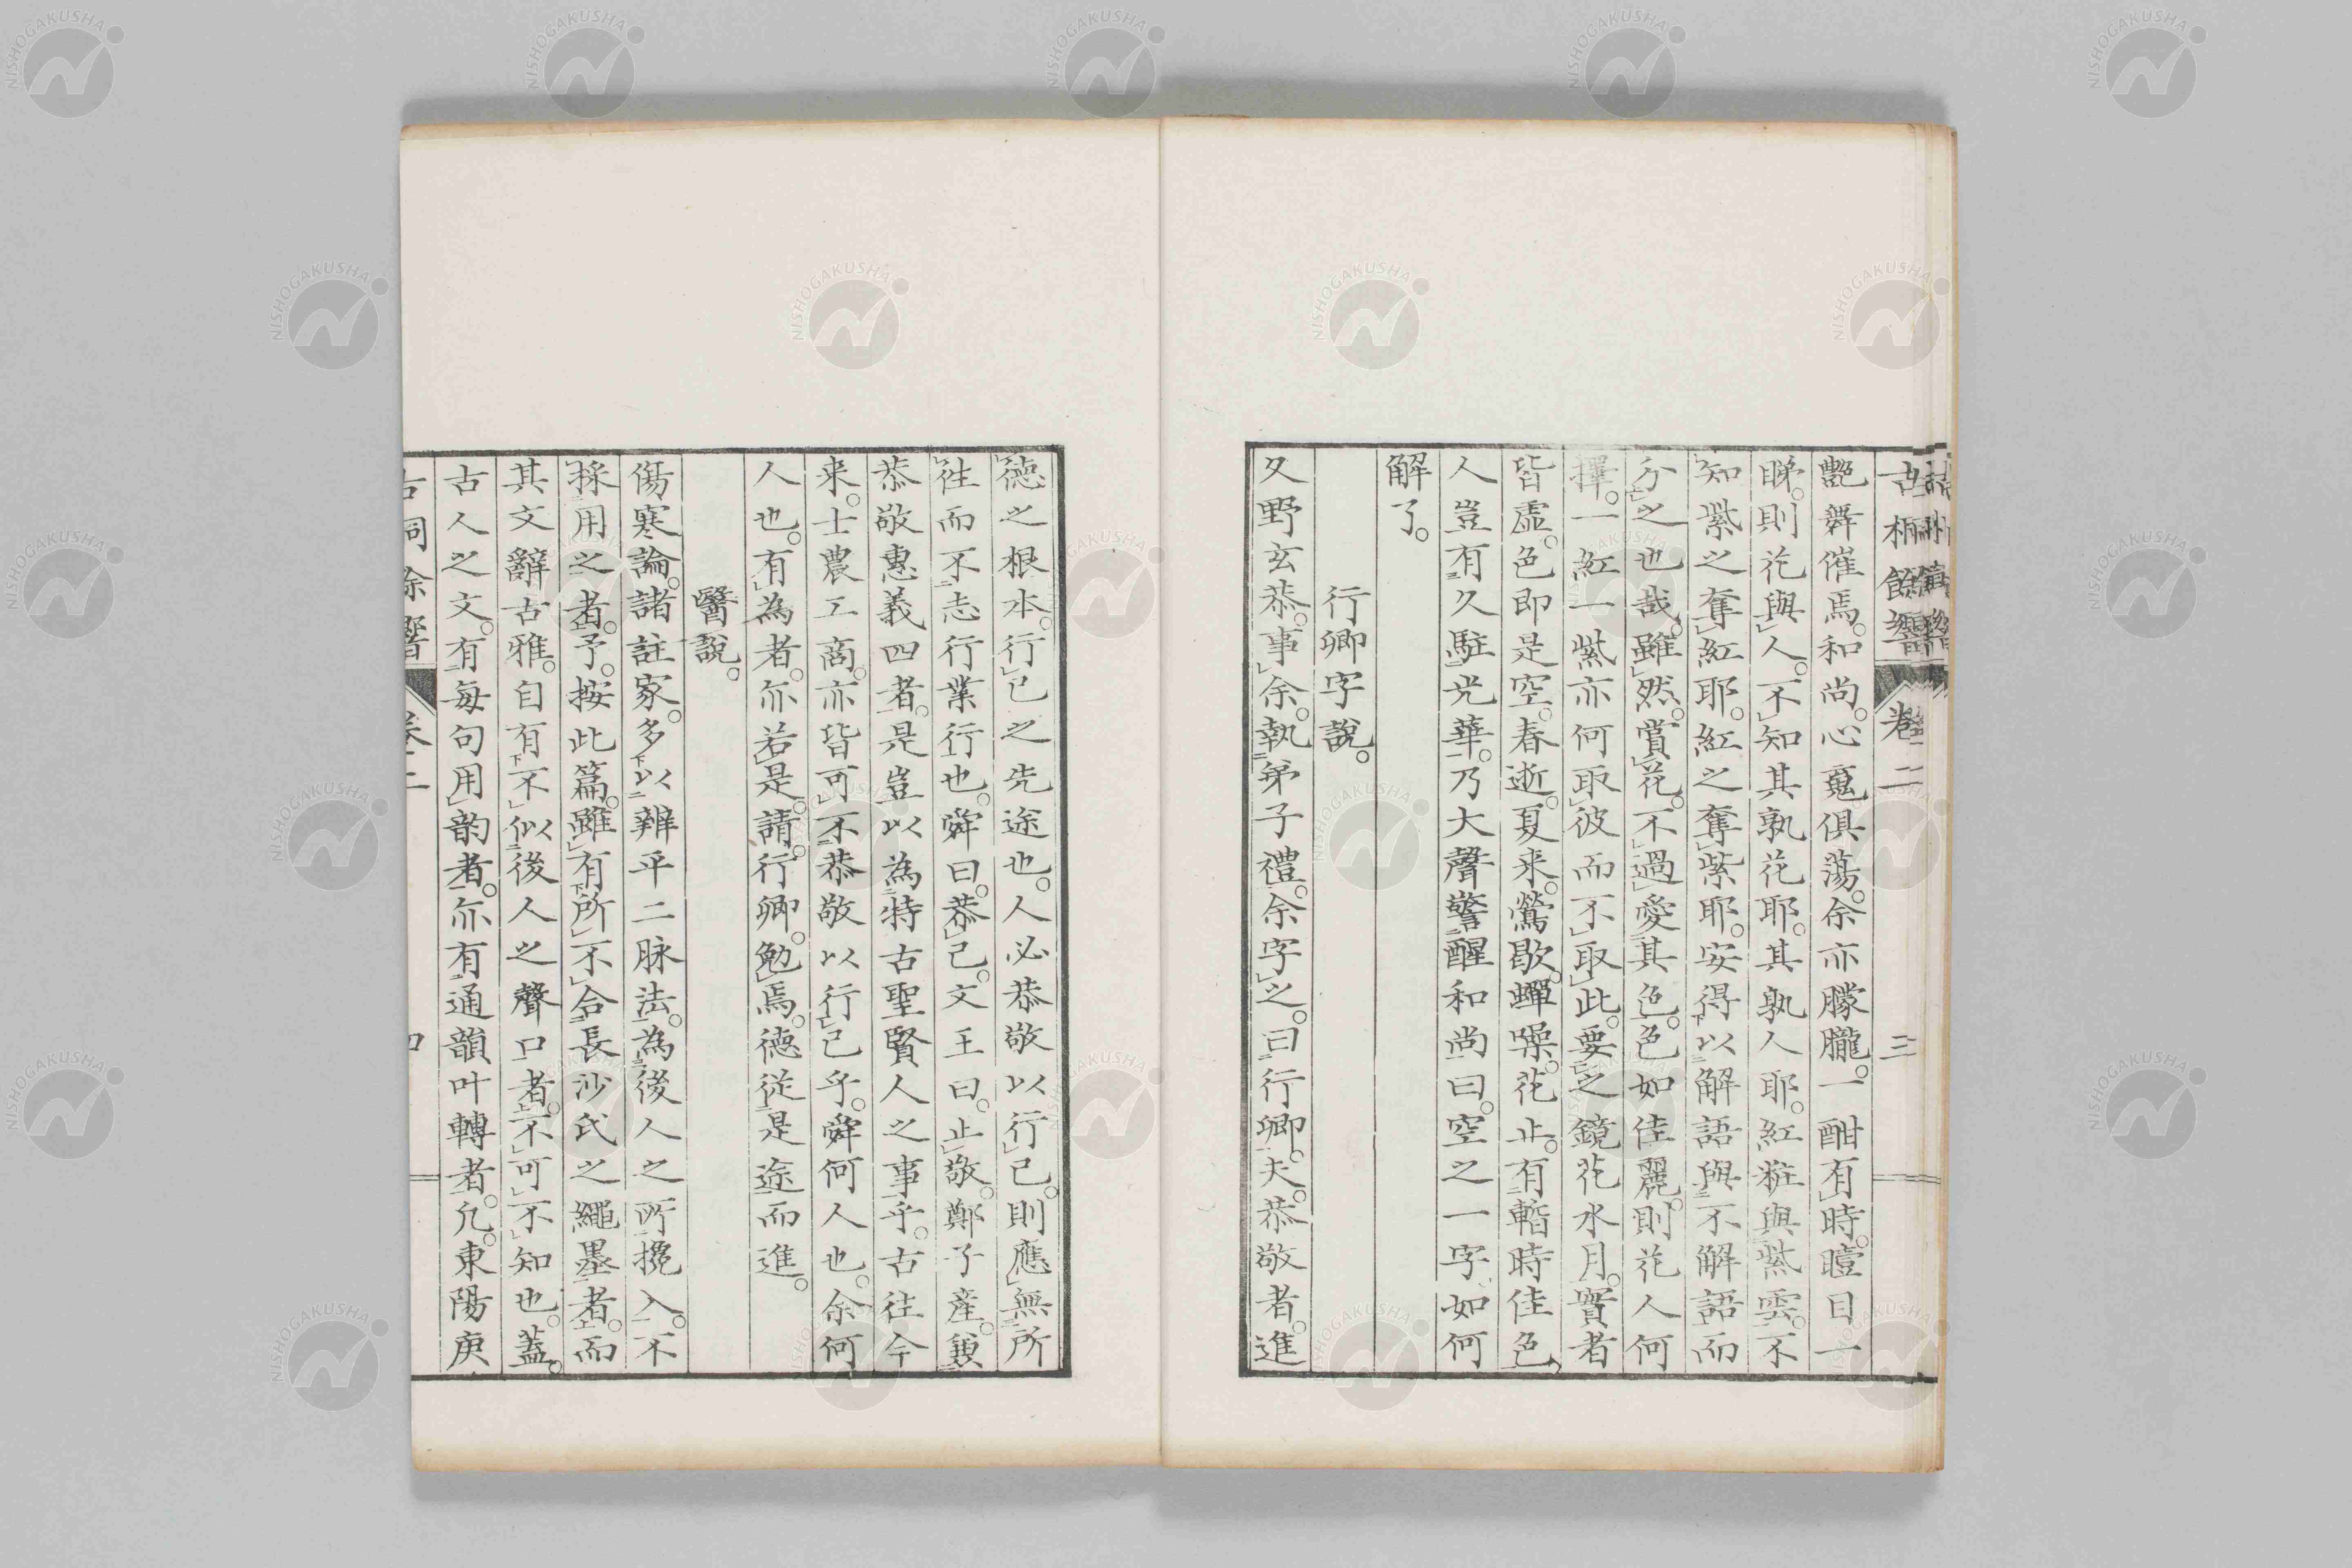 艷舞催焉。和尚。心蒐俱蕩。余亦朦朧。一酣有時。曀目一
睇。則花與人。不知其孰花耶。其孰人耶。紅粧與紫雲。不
知紫之奪紅耶。紅之奪紫耶。安得以解語與不解語而
分之也哉。雖然。賞花。不過愛其色。色如佳麗。則花人何
擇。一紅一紫亦何取彼而不取此。要之鏡花水月。實者
皆虛。色即是空。春逝。夏来。鶯歇。蟬噪。花止。有暫時佳色、
人豈有久駐光華。乃大聲警醒和尚曰。空之一字。如何
解了。
行卿字說。
久野玄恭。事余。執弟子禮。余字之。曰行卿。夫。恭敬者。進
德之根本。行己之先途也。人必恭敬以行己。則應無所
往而不志行業行也。舜曰。恭己。文王曰。止敬。鄭子產。兼
恭敬惠義四者。是豈以為特古聖賢人之事乎。古往今
来。士農工商。亦皆可不恭敬以行己乎。舜何人也。余何
人也。有為者。亦若是。請。行卿。勉焉。德從是途而進。
醫說。
傷寒論。諸註家。多以辨平二脉法。為後人之所攙入。不
採用之者。予。按此篇。雖有所不合長沙氏之繩墨者。而
其文辭古雅。自有不似後人之聲口者。不可不知也。蓋。
古人之文。有每句用韵者。亦有通韻叶轉者。凡。東陽庚
卷二
三
NISHOGAKUSHA